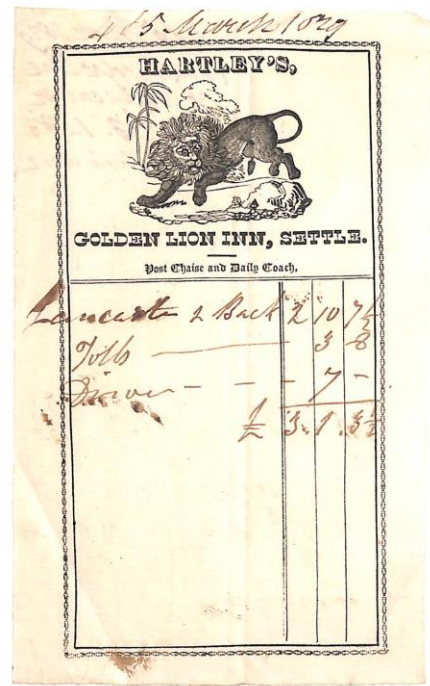 4 & 5 March 1829
HARTLEY'S,
GOLDEN LION INN, SETTLE.
Post Chaise and Daily Coach,
Lancaster & Back 2 10 7½
Tolls — 3 8
Driver - - - 7 -
£ 3. 1. 3½